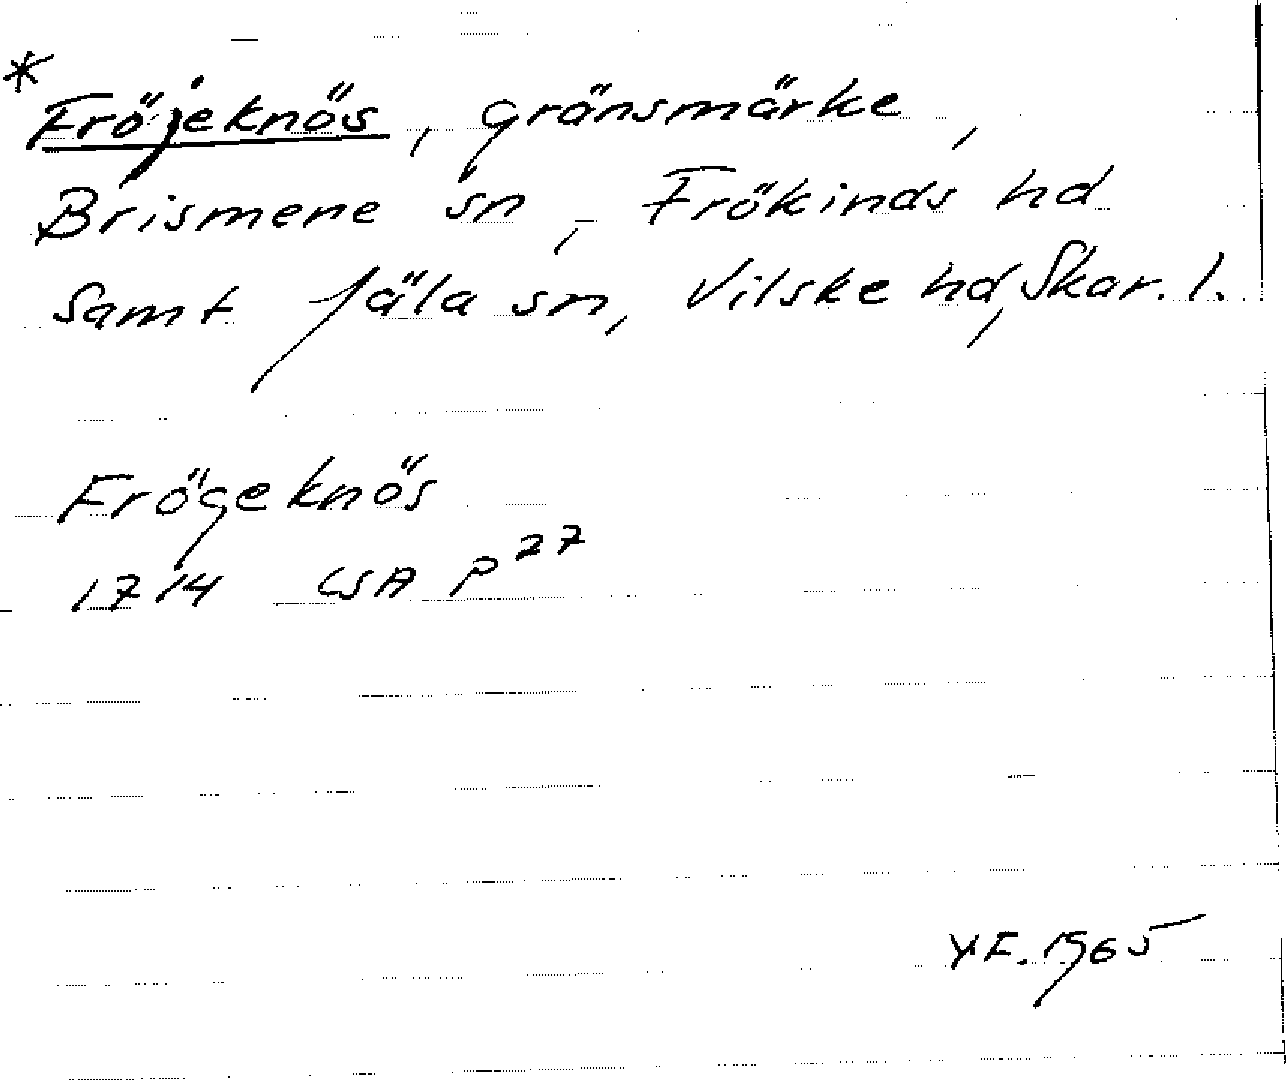 * Fröjeknös, gränsmärke,
Brismene sn, Frökinds hd
samt Jäla sn, Vilske hd, Skar. l.
Frögeknös
1714 LSA P 27
Y.F. 1965